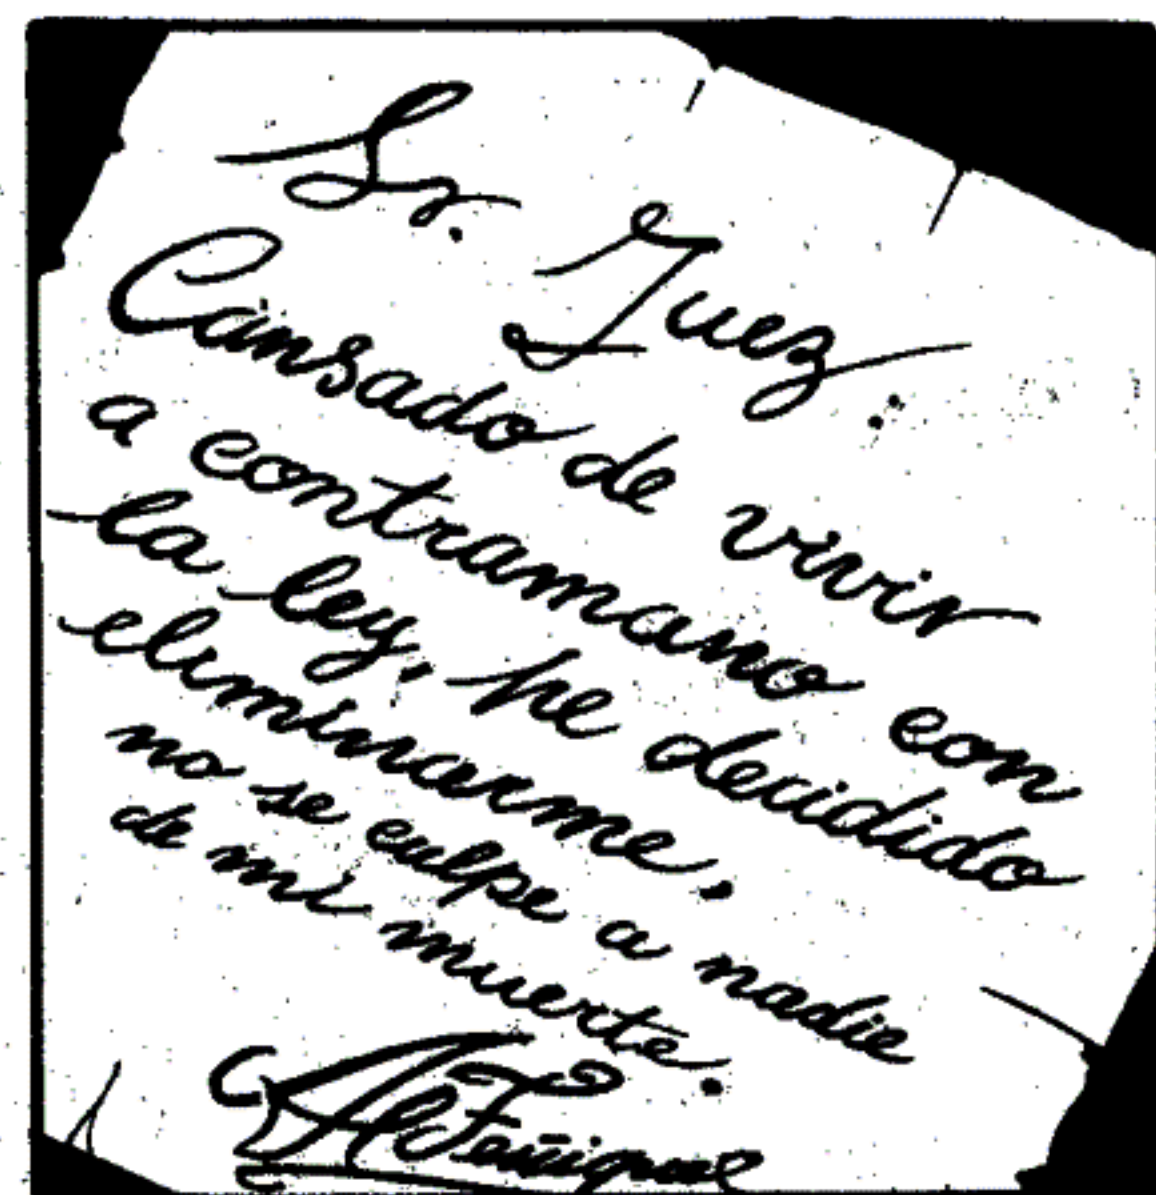 Sr. Juez:
Cansado de vivir
a contramano con
la ley, he decidido
eliminarme,
no se culpe a nadie
de mi muerte.